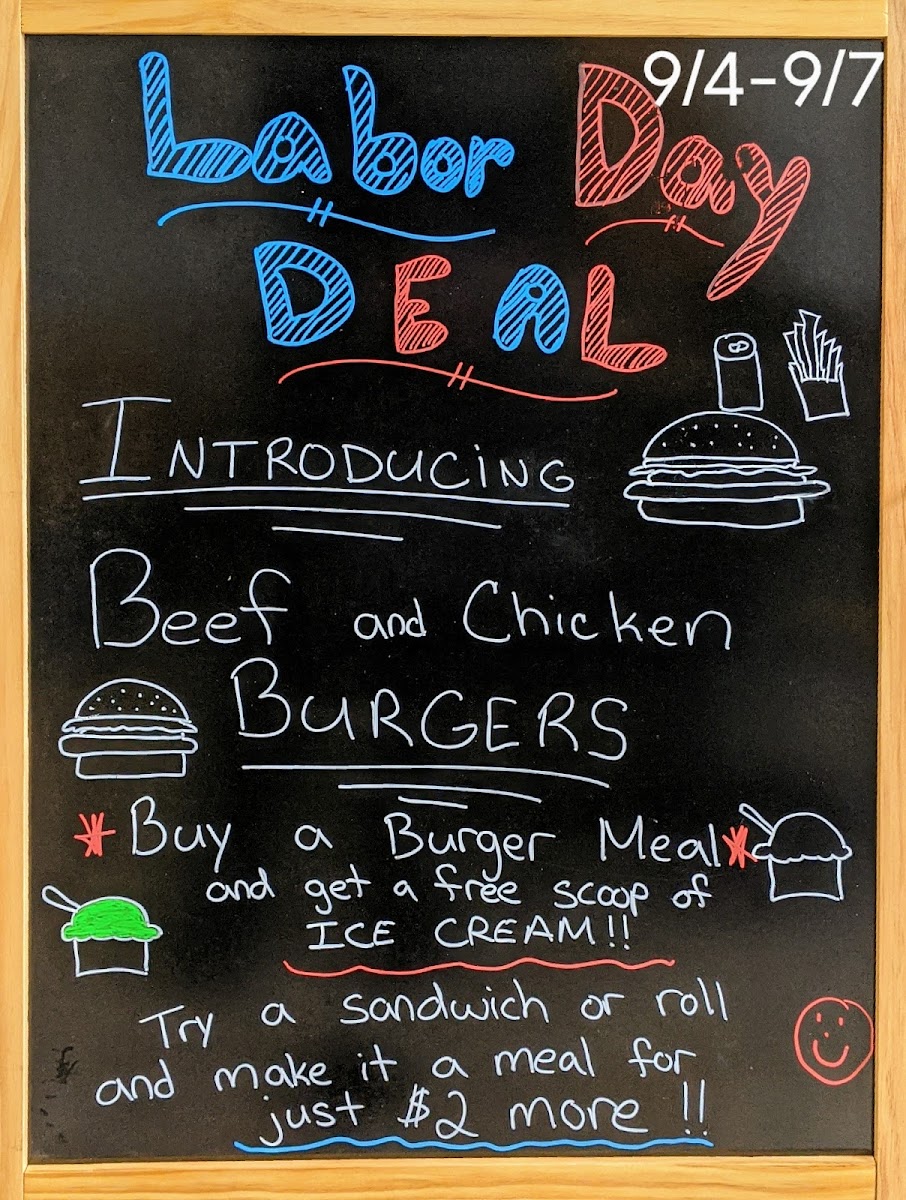 9/4-9/7
Labor Day
DEAL
INTRODUCING
Beef and Chicken
BURGERS
*Buy a Burger Meal*
and get a free scoop of
ICE CREAM!!
Try a sandwich or roll
and make it a meal for
just $2 more !!